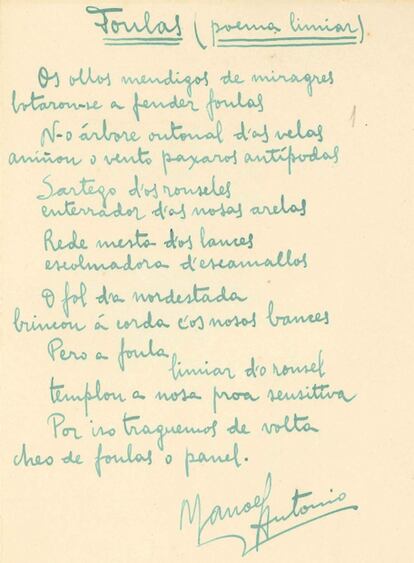 Foulas (poema limiar)
1
Os ollos mendigos de miragres
botaron-se a fender foulas
N-o árbore outonal d'as velas
aniñou o vento paxaros antípodas
Sartego d'os ronseles
enterrador d'as nosas arelas
Rede mesta d'os lances
escolmadora d'escamallos
O fol d'a nordestada
brincou á corda c'os nosos bances
Pero a foula
limiar d'o ronsel
templou a nosa proa sensittiva
Por iso traguemos de volta
cheo de foulas o panel.
Manoel
Antonio